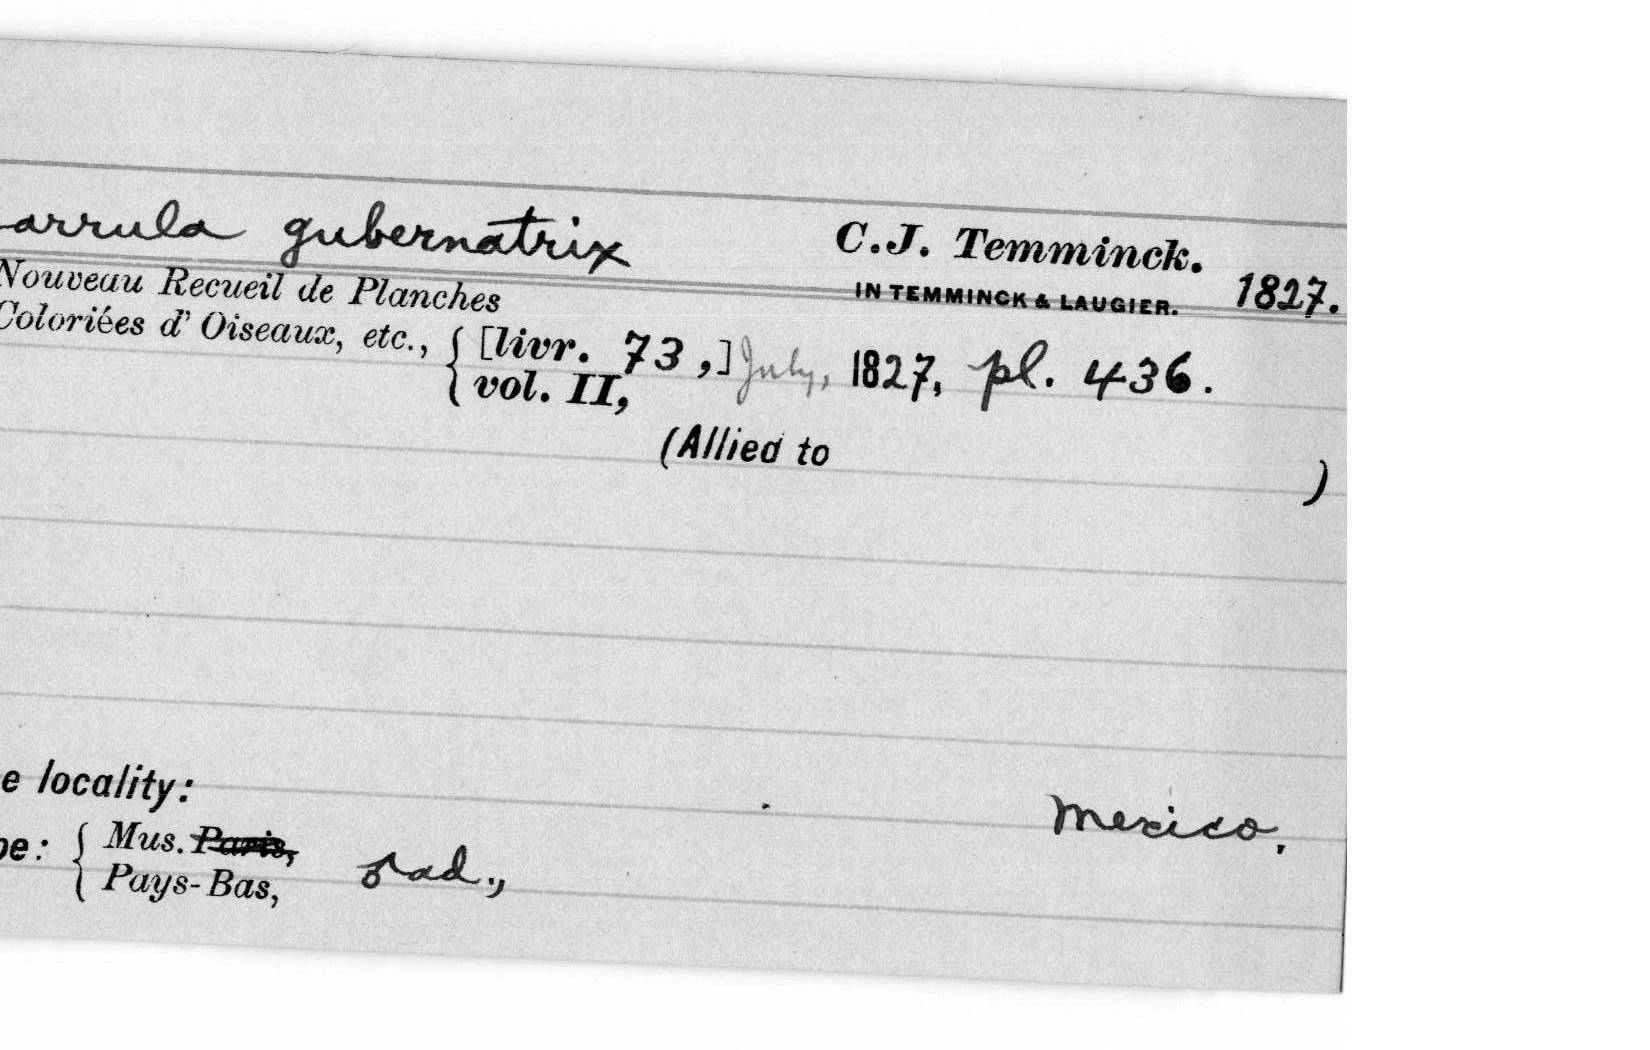 arrula gubernatrix C.J. Temminck.
IN TEMMINCK & LAUGIER. 1827.
Nouveau Recueil de Planches
Coloriées d' Oiseaux, etc., { [livr. 73,] July, 1827, pl. 436.
vol. II,
(Allied to )
e locality: Mexico.
pe: { Mus. Paris,
Pays-Bas, ♂ ad.,